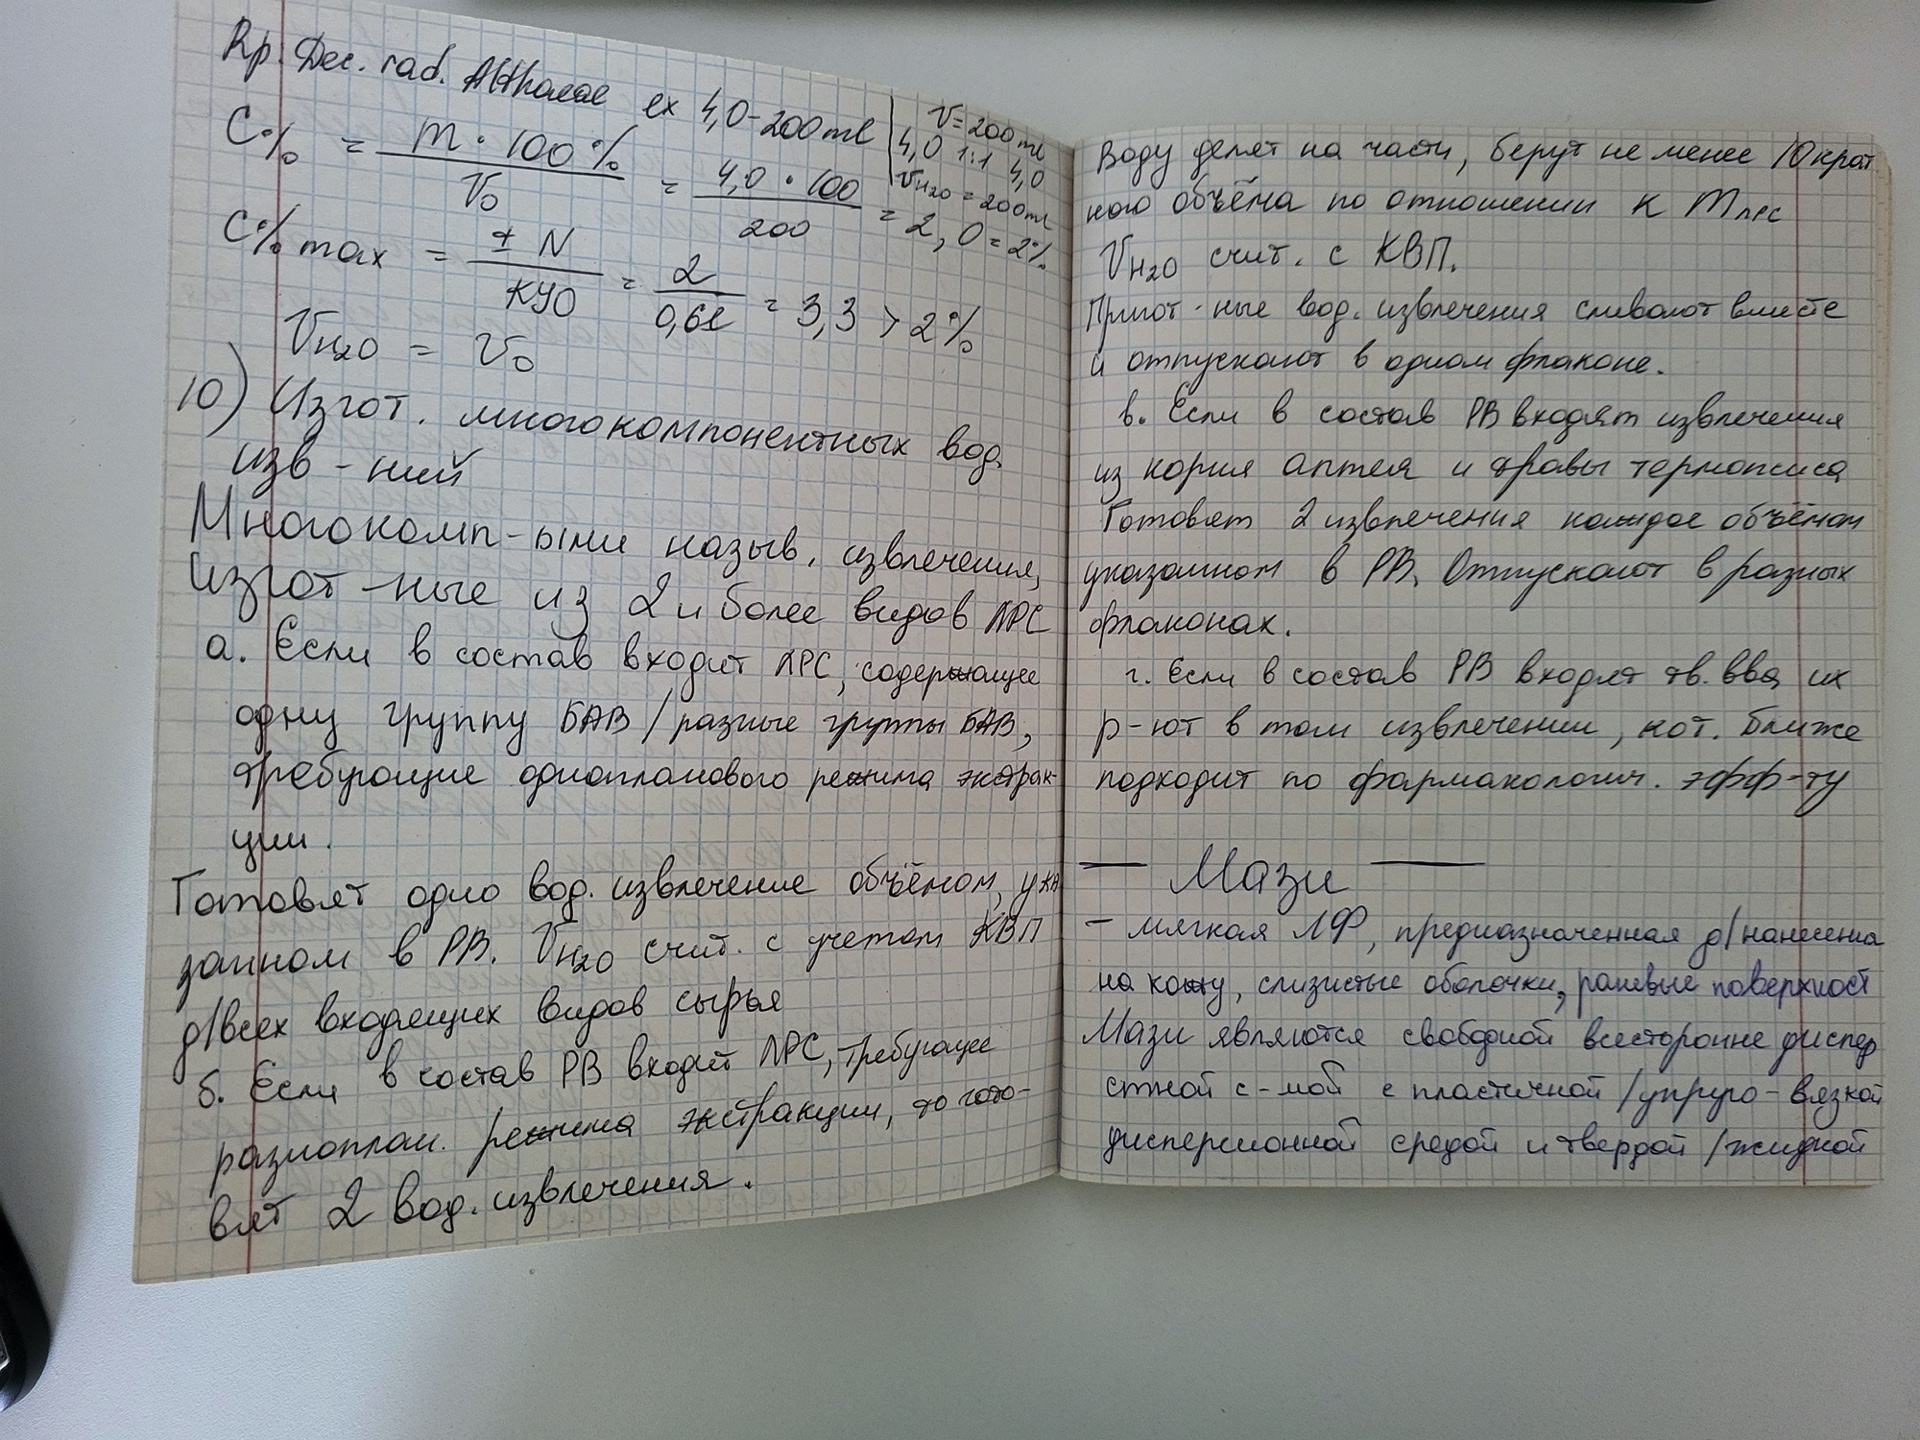 Rp: Dec. rad. Althaeae ex 4,0-200ml
V=200ml
4,0 1:1 4,0
VH2O = 200ml
C% = m · 100% / V0 = 4,0 · 100 / 200 = 2,0 = 2%
C% max = ± N / КУО = 2 / 0,61 = 3,3 > 2%
VH2O = V0
10) Изгот. многокомпонентных вод.
изв-ний
Многокомп-ыми назыв. извлечения,
изгот-ные из 2 и более видов ЛРС
а. Если в состав входит ЛРС, содержащее
одну группу БАВ / разные группы БАВ,
требующие однопланового режима экстрак-
ции.
Готовят одно вод. извлечение объёмом, ука
занном в РВ. VH2O счит. с учетом КВП
д/всех входящих видов сырья
б. Если в состав РВ входит ЛРС, требующее
разноплан. режима экстракции, то гото-
вят 2 вод. извлечения.
Воду делят на части, берут не менее 10 крат
ного объёма по отношении к mлрс
VH2O счит. с КВП.
Пригот-ные вод. извлечения сливают вместе
и отпускают в одном флаконе.
в. Если в состав РВ входят извлечения
из корня алтея и травы термопсиса
Готовят 2 извлечения каждое объёмом
указанном в РВ. Отпускают в разных
флаконах.
г. Если в состав РВ входят тв. вва, их
р-ют в том извлечении, кот. ближе
подходит по фармакологич. эфф-ту
— Мази —
- мягкая ЛФ, предназначенная д/нанесения
на кожу, слизистые оболочки, раневые поверхност
Мази являются свободной всесторонне диспер
стной с-мой с пластичной / упруго-вязкой
дисперсионной средой и твердой / жидкой